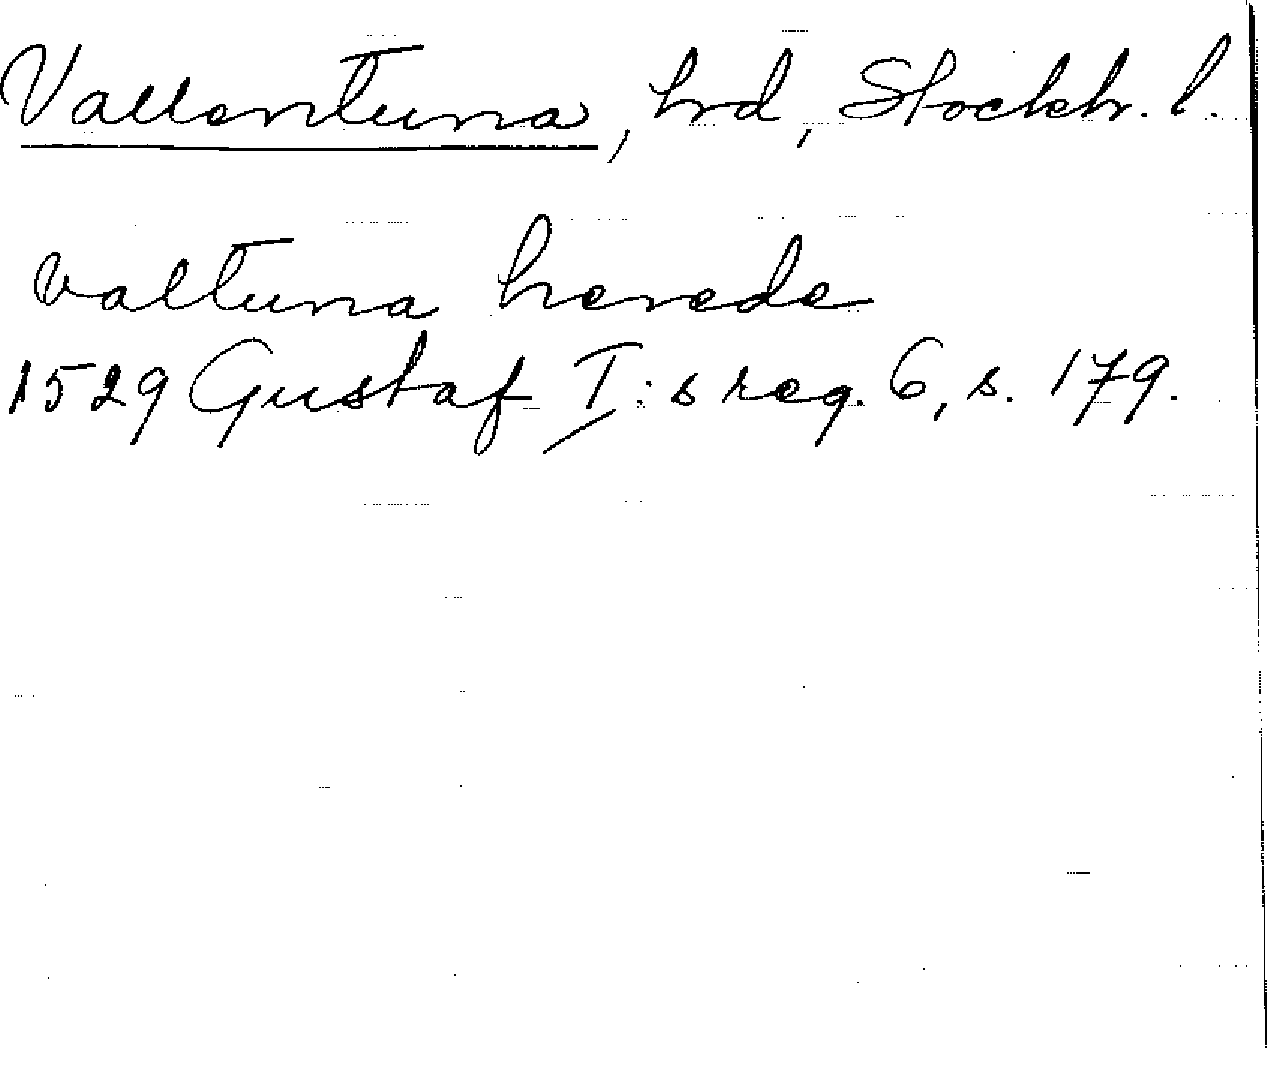 Vallentuna, hrd, Stockh. l.
valtuna herede
1529 Gustaf I:s reg. 6, s. 179.